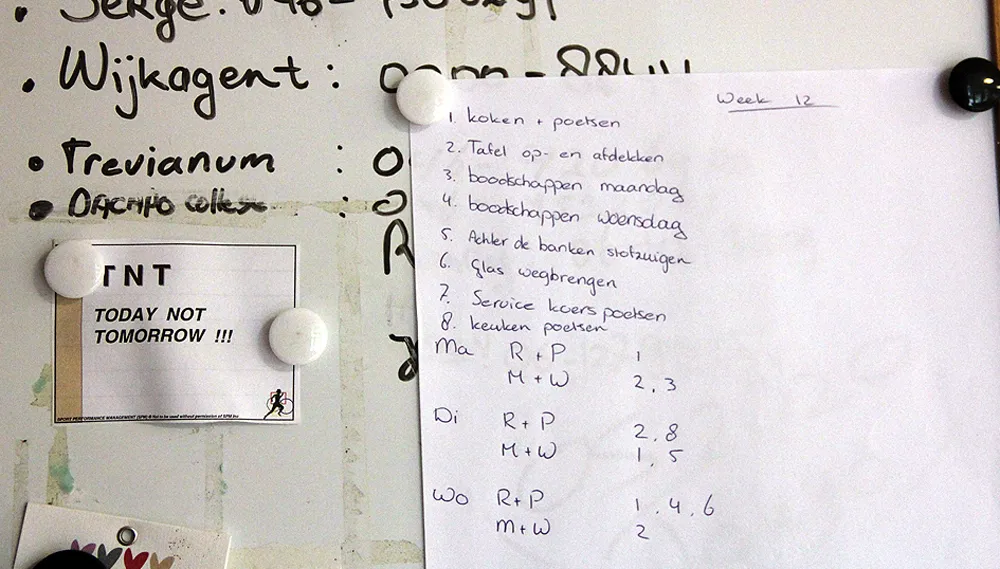 Serge:
• Wijkagent :
• Trevianum : 0
• college : 0
R
TNT
TODAY NOT
TOMORROW !!!
SPORT PERFORMANCE MANAGEMENT (SPM) ® Not to be used without permission of SPM
Week 12
1. koken + poetsen
2. Tafel op- en afdekken
3. boodschappen maandag
4. boodschappen woensdag
5. Achter de banken stofzuigen
6. Glas wegbrengen
7. Service koers poetsen
8. keuken poetsen
Ma R + P 1
M + W 2, 3
Di R + P 2, 8
M + W 1, 5
Wo R + P 1, 4, 6
M + W 2